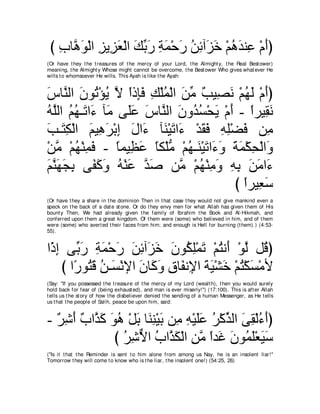 ﴿ أَمْ عِندَهُمْ خَزَآئِنُ رَحْمَةِ رَبِّكَ الْعَزِيزِ الْوَهَّابِ ﴾
(Or have they the treasures of the mercy of your Lord, the Almighty, the Real Bestower)
meaning, the Almighty Whose might cannot be overcome, the Bestower Who gives whatever He
wills to whomsoever He wills. This Ayah is like the Ayah
﴿ أَمْ لَهُمْ نَصِيبٌ مِّنَ الْمُلْكِ فَإِذاً لاَّ يُؤْتُونَ النَّاسَ
نَقِيراً - أَمْ يَحْسُدُونَ النَّاسَ عَلَى مَآ ءَاتَـهُمُ اللَّهُ
مِن فَضْلِهِ فَقَدْ ءَاتَيْنَآ ءَالَ إِبْرَهِيمَ الْكِتَـبَ
وَالْحِكْمَةَ وَءَاتَيْنَـهُمْ مُّلْكاً عَظِيماً - فَمِنْهُمْ مَّنْ
ءَامَنَ بِهِ وَمِنْهُمْ مَّن صَدَّ عَنْهُ وَكَفَى بِجَهَنَّمَ
سَعِيراً ﴾
(Or have they a share in the dominion Then in that case they would not give mankind even a
speck on the back of a date stone. Or do they envy men for what Allah has given them of His
bounty Then, We had already given the family of Ibrahim the Book and Al-Hikmah, and
conferred upon them a great kingdom. Of them were (some) who believed in him, and of them
were (some) who averted their faces from him; and enough is Hell for burning (them).) (4:53-
55).
﴿ قُل لَّوْ أَنتُمْ تَمْلِكُونَ خَزَآئِنَ رَحْمَةِ رَبِّى إِذًا
لأمْسَكْتُمْ خَشْيَةَ الإِنفَاقِ وَكَانَ الإنْسَـنُ قَتُورًا ﴾
(Say: "If you possessed the treasure of the mercy of my Lord (wealth), then you would surely
hold back for fear of (being exhausted), and man is ever miserly!'') (17:100). This is after Allah
tells us the story of how the disbeliever denied the sending of a human Messenger, as He tells
us that the people of Salih, peace be upon him, said:
﴿ أَءُلْقِىَ الذِّكْرُ عَلَيْهِ مِن بَيْنِنَا بَلْ هُوَ كَذَّابٌ أَشِرٌ -
سَيَعْلَمُونَ غَداً مَّنِ الْكَذَّابُ الاٌّشِرُ ﴾
("Is it that the Reminder is sent to him alone from among us Nay, he is an insolent liar!''
Tomorrow they will come to know who is the liar, the insolent one!) (54:25,26)